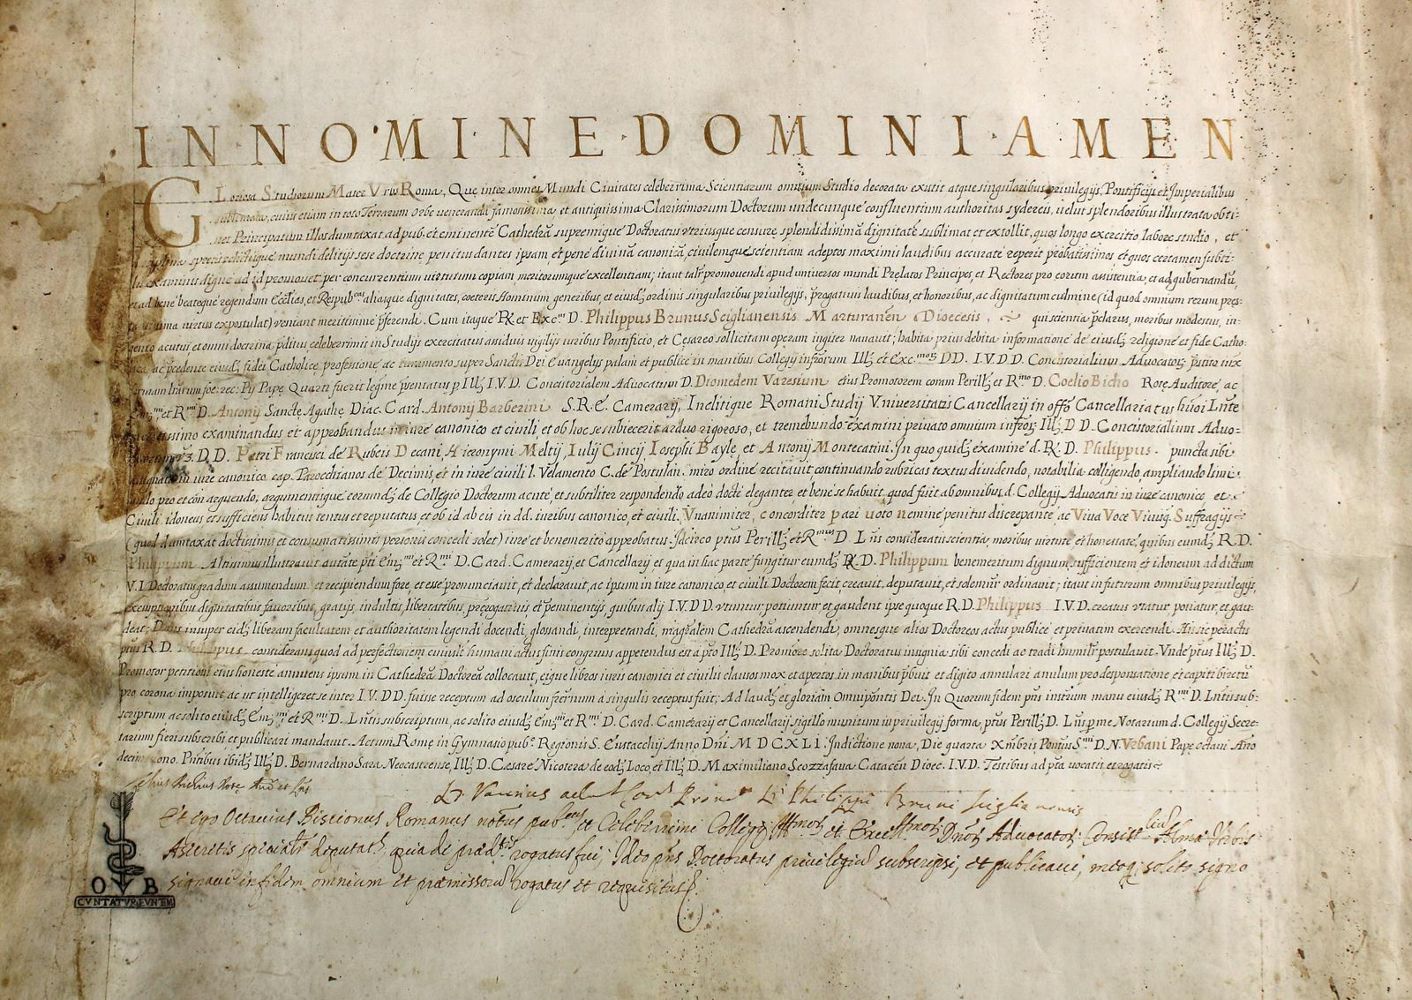 IN·NO·MI·NE·DOMINI·AMEN
GLoriosa Studiorum Mater Vrbs Roma, Que inter omnes Mundi Ciuitates celeberrima Scientiarum omnium Studio decorata existit atque singularibus priuilegijs, Pontificijs et Imperialibus
sublimata, cuius etiam in toto Terrarum orbe veneranda famosissima, et antiquissima Clarissimorum Doctorum undecunque confluentium authoritas sydereis, uelut splendoribus illustrata obti-
net Principatum illos dumtaxat ad pub. et eminentē Cathedrā supremiquę Doctoratus vtriusque censurę splendidissimā dignitatē sublimat et extollit, quos longo exercitio labore studio, et
spretis relictisque mundi delitijs sese doctrinę penitus dantes ipsam, et penē diuinā canonicā, ciuilemque scientiam adeptos maximis laudibus accurate reperit probatissimos et quos certamen subti-
le examinis dignę ad id promouet, per concurrentium uirtutum copiam meritorumque excellentiam; itaut tales promouendi apud uniuersos mundi Prelatos Principes, et Rectores pro eorum assistentia, et ad gubernandū,
et ad bene beatequę regendum Ecclias, et Respub. aliasque dignitates, coeteris Hominum generibus, et eiusdē ordinis singularibus priuilegijs, prerogatiuis laudibus, et honoribus, ac dignitatum culmine (id quod omnium rerum prę-
uirtus expostulat) veniant meritissime preferendi. Cum itaque R. et Exc. D. Philippus Brunus Sciglianensis Marturanen Dioecesis, qui scientia preclarus, moribus modestus, in-
genio acutus et omni doctrina preditus celeberrimis in Studijs exercitatus assiduis uigilijs iuribus Pontificio, et Cesareo sollicitam operam iugiter nauauit; habita prius debita informatione de eiusdē religione et fide Catho-
lica, ac precedente eiusdē fidei Catholicę professione ac iuramento super Sancta Dei Euangelia palam et publicē in manibus Collegij infrōrum Illj et Exc. DD. I.V.DD. Concistorialium Aduocatorū prestito iuxta
formam literarum foe: rec: Pij Papę Quarti fuerit legitime presentatus p̄ Illj I.V.D. Concistorialem Aduocatum D. Diomedem Varesium eius Promotorem coram Perillj et Rmo D. Coelio Bicho Rotę Auditore, ac
Emj et Rmj D. Antonij Sanctę Agathę Diac. Card. Antonij Barberini S.R.E. Camerarij, Inclitique Romani Studij Vniuersitatis Cancellarij in offo Cancellariatus hmōi Lnte
examinandus et approbandus in iure canonico et ciuili et ob hoc se subiecerit arduo rigoroso, et tremebundo examini priuato omnium infrōrj Illj DD. Concistorialium Aduo-
catorum DD. Petri Francisci de Rubeis Decani, Hieronymi Meltij, Iulij Cincij Iosephi Bayle, et Antonij Montecatini. In quo quidē examine d. R. D. Philippus puncta sibi
assignata in iure canonico cap. Parrochianos de Decimis, et in iure ciuili l. Velamento C. de Postulan. miro ordine recitauit, continuando rubricas textus diuidendo, notabilia colligendo, ampliando limi-
tando pro et con arguendo, argumentisque eorundē de Collegio Doctorum acutē, et subtiliter respondendo adeo doctē eleganter, et benē se habuit, quod fuit ab omnibus d. Collegij Aduocatis in iure canonico et
Ciuili idoneus et sufficiens habitus tentus et reputatus, et ob id ab eis in dd. iuribus canonico, et ciuili. Vnanimiter, concorditer pari uoto nemine penitus discrepante, ac Viua Voce Viuisq Suffragijs
(quod dumtaxat doctissimis et consumatissimis personis concedi solet) iure et benemerito approbatus. Idcirco ptus Perillj et Rmus D. Ltis consideratis scientia, moribus uirtute et honestate, quibus eumdē R.D.
Philippum Altissimus illustrauit, auttate pti Emj et Rmj D. Card. Camerarij et Cancellarij et qua in hac parte fungitur eumdē R. D. Philippum benemeritum dignum sufficientem et idoneum ad dictum
V.I. Doctoratus gradum assumendum, et recipiendum fore, et esse pronunciauit, et declarauit, ac ipsum in iure canonico et ciuili Doctorem fecit, creauit, deputauit, et solemnr ordinauit; itaut in futurum omnibus priuilegijs,
exemptionibus dignitatibus fauoribus, gratijs, indultis, libertatibus, prerogatiuis et preminentijs, quibus alij I.V.DD. vtuntur potiuntur et gaudent ipse quoque R.D. Philippus I.V.D. creatus vtatur, potiatur, et gau-
deat; Dans insuper eidē liberam facultatem et authoritatem legendi docendi, glossandi, interpretandi, magralem Cathedrā ascendendi, omnesque alios Doctoreos actus publicē et priuatim exercendi. His sic peractis
ptus R.D. Philippus considerans quod ad perfectionem cuiuslt humani actus finis congruus appetendus est a pto Illj D. Promore solita Doctoratus insignia sibi concedi ac tradi humilr postulauit. Vnde ptus Illj D.
Promotor petitioni eius honestē annuens ipsum in Cathedrā Doctoreā collocauit, eique libros iuris canonici et ciuilis clausos mox et apertos in manibus posuit et digito annulari anulum pro desponsatione et capiti birettū
pro corona imposuit, ac ut intelligeret se inter I.V.DD. fuisse receptum ad osculum frernum a singulis receptus fuit; Ad laudē et gloriam Omnipontis Dei. In Quorum fidem pns instrum manu eiusdē Rmj D. Lntis sub-
scriptum ac solito eiusdē Emj et Rmj D. Lntis subscriptum, ac solito eiusdē Emj et Rmj D. Card. Camerarij et Cancellarij sigillo munitum in priuilegij forma, ptus Perillj D. Ltis per me Notarium d. Collegij Secre-
tarium fieri subscribi et publicari mandauit. Actum Romę in Gymnasio pub. Regionis S. Eustacchij Anno Dni MDCXLI. Indictione nona, Die quarta Xmbris Pontus Smi D.N. Vrbani Papę octaui Ano
decimo nono. Pntibus ibidē Illj D. Bernardino Sara Neocastrense, Illj D. Cęsare Nicotera de eod. Loco, et Illj D. Maximiliano Scozzafaua Catacen Dioec. I.V.D. Testibus ad pta uocatis et rogatis
Coelius Bichius Rotę Aud. et Lns
D. Varesius Promor D. Philippi Bruni Siglianensis
Et ego Octauius Biscionus Romanus notus pub. et Celeberrimi Collegij Illmor et Excellmor Dnor Aduocator Consistlium Almę Vrbis
Asecretis specialr deputatus, quia de prędtis rogatus fui, Ideo pns Doctoratus priuilegiū subscripsi, et publicaui, meoq solito signo
signaui in fidem omnium et pręmissorū rogatus et requisitus
O B
CVNTATVR EVNTEM